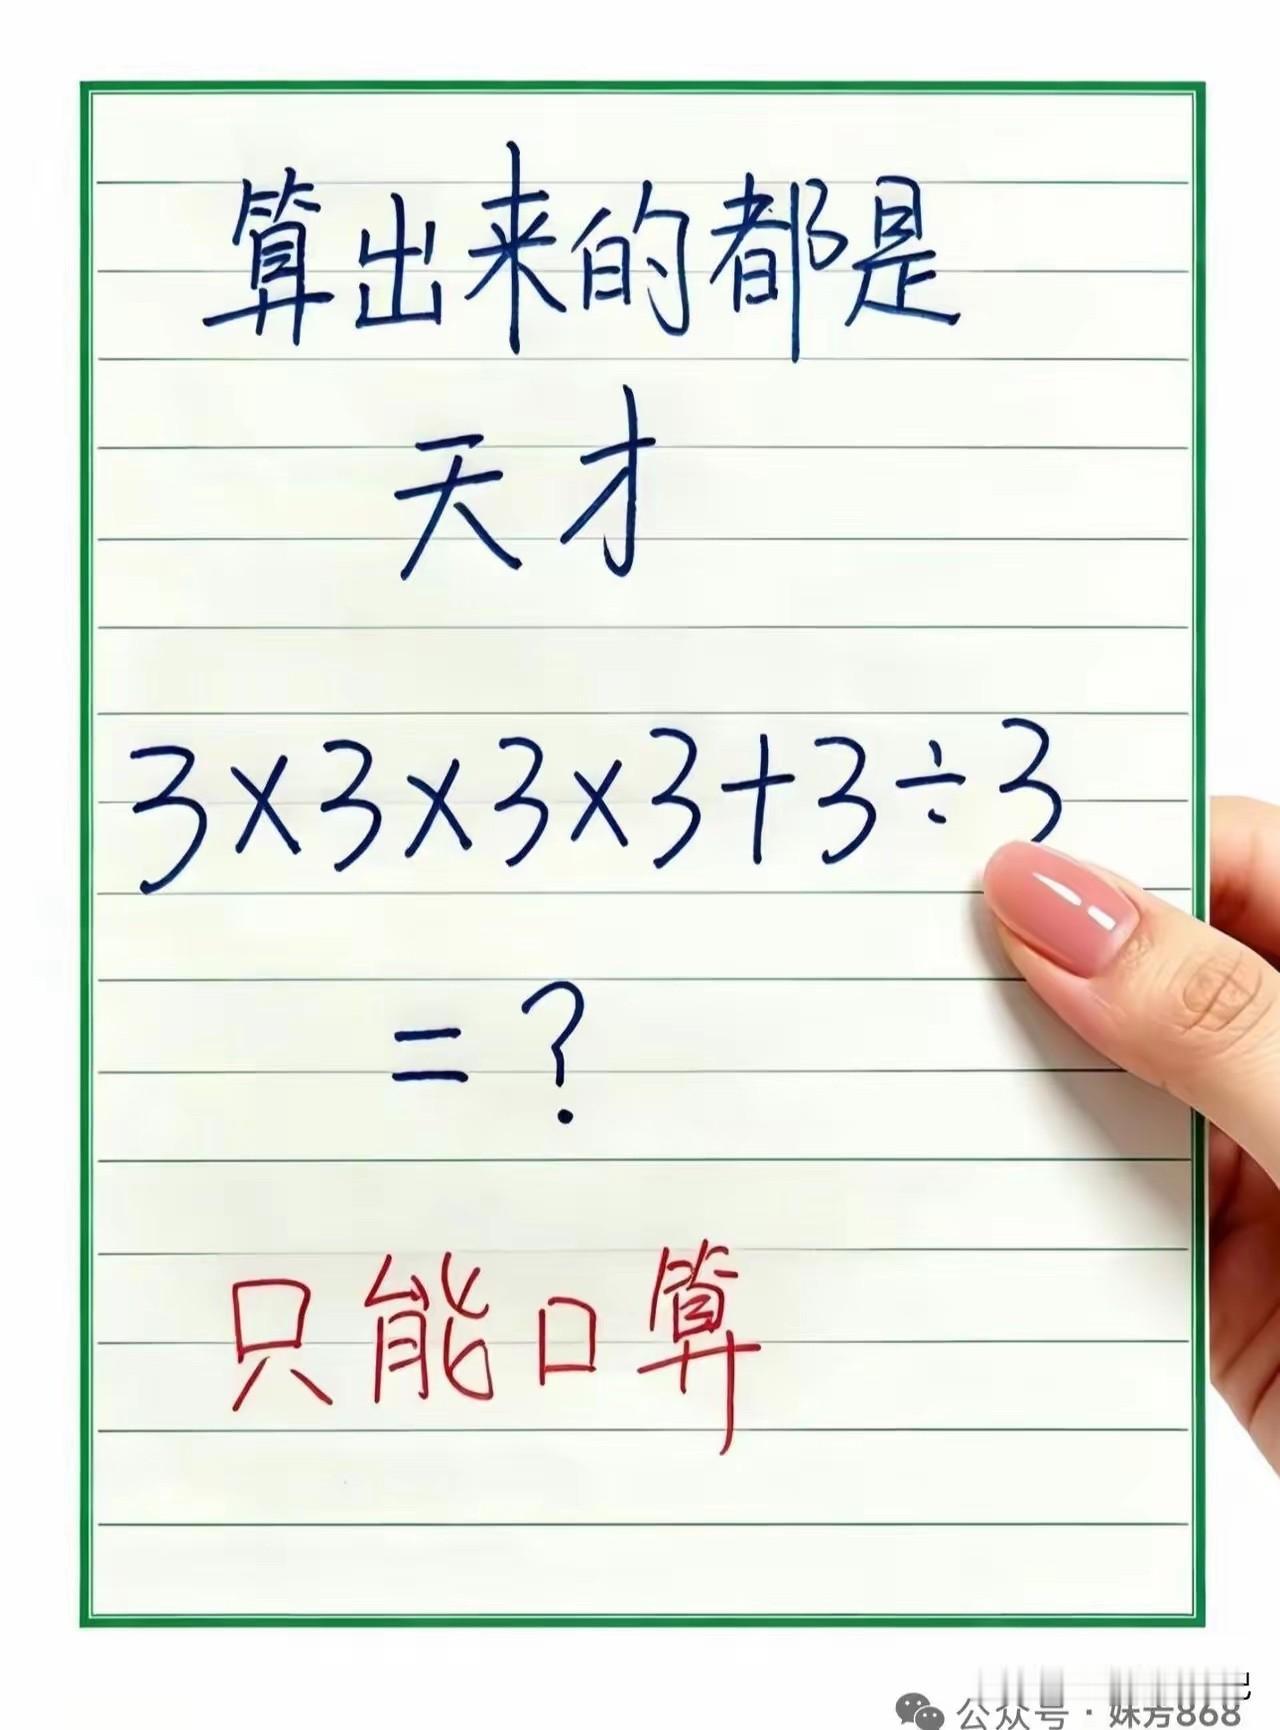 算出来的都是
天才
3×3×3×3+3÷3
=?
只能口算
公众号·妹方868